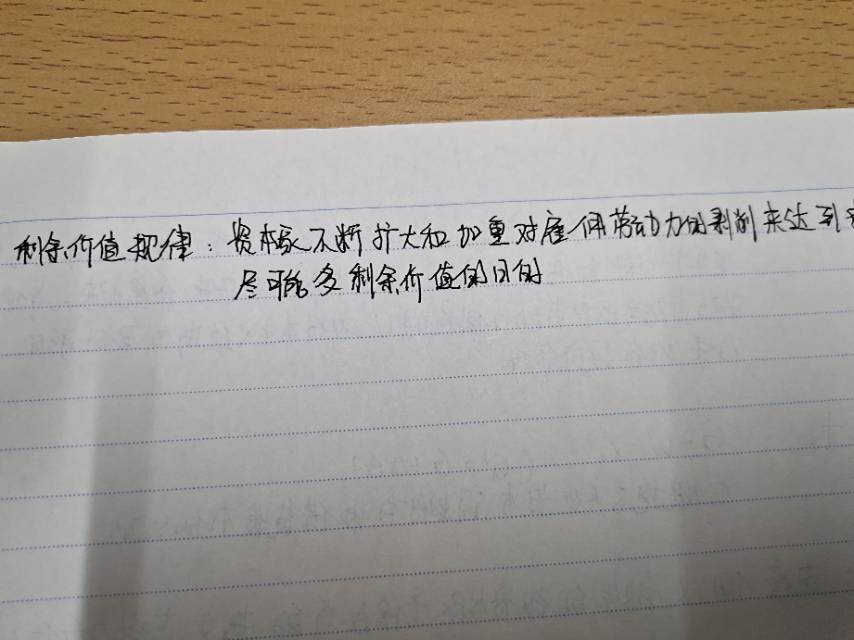 剩余价值规律：资本家不断扩大和加重对雇佣劳动力的剥削来达到
尽可能多剩余价值的目的